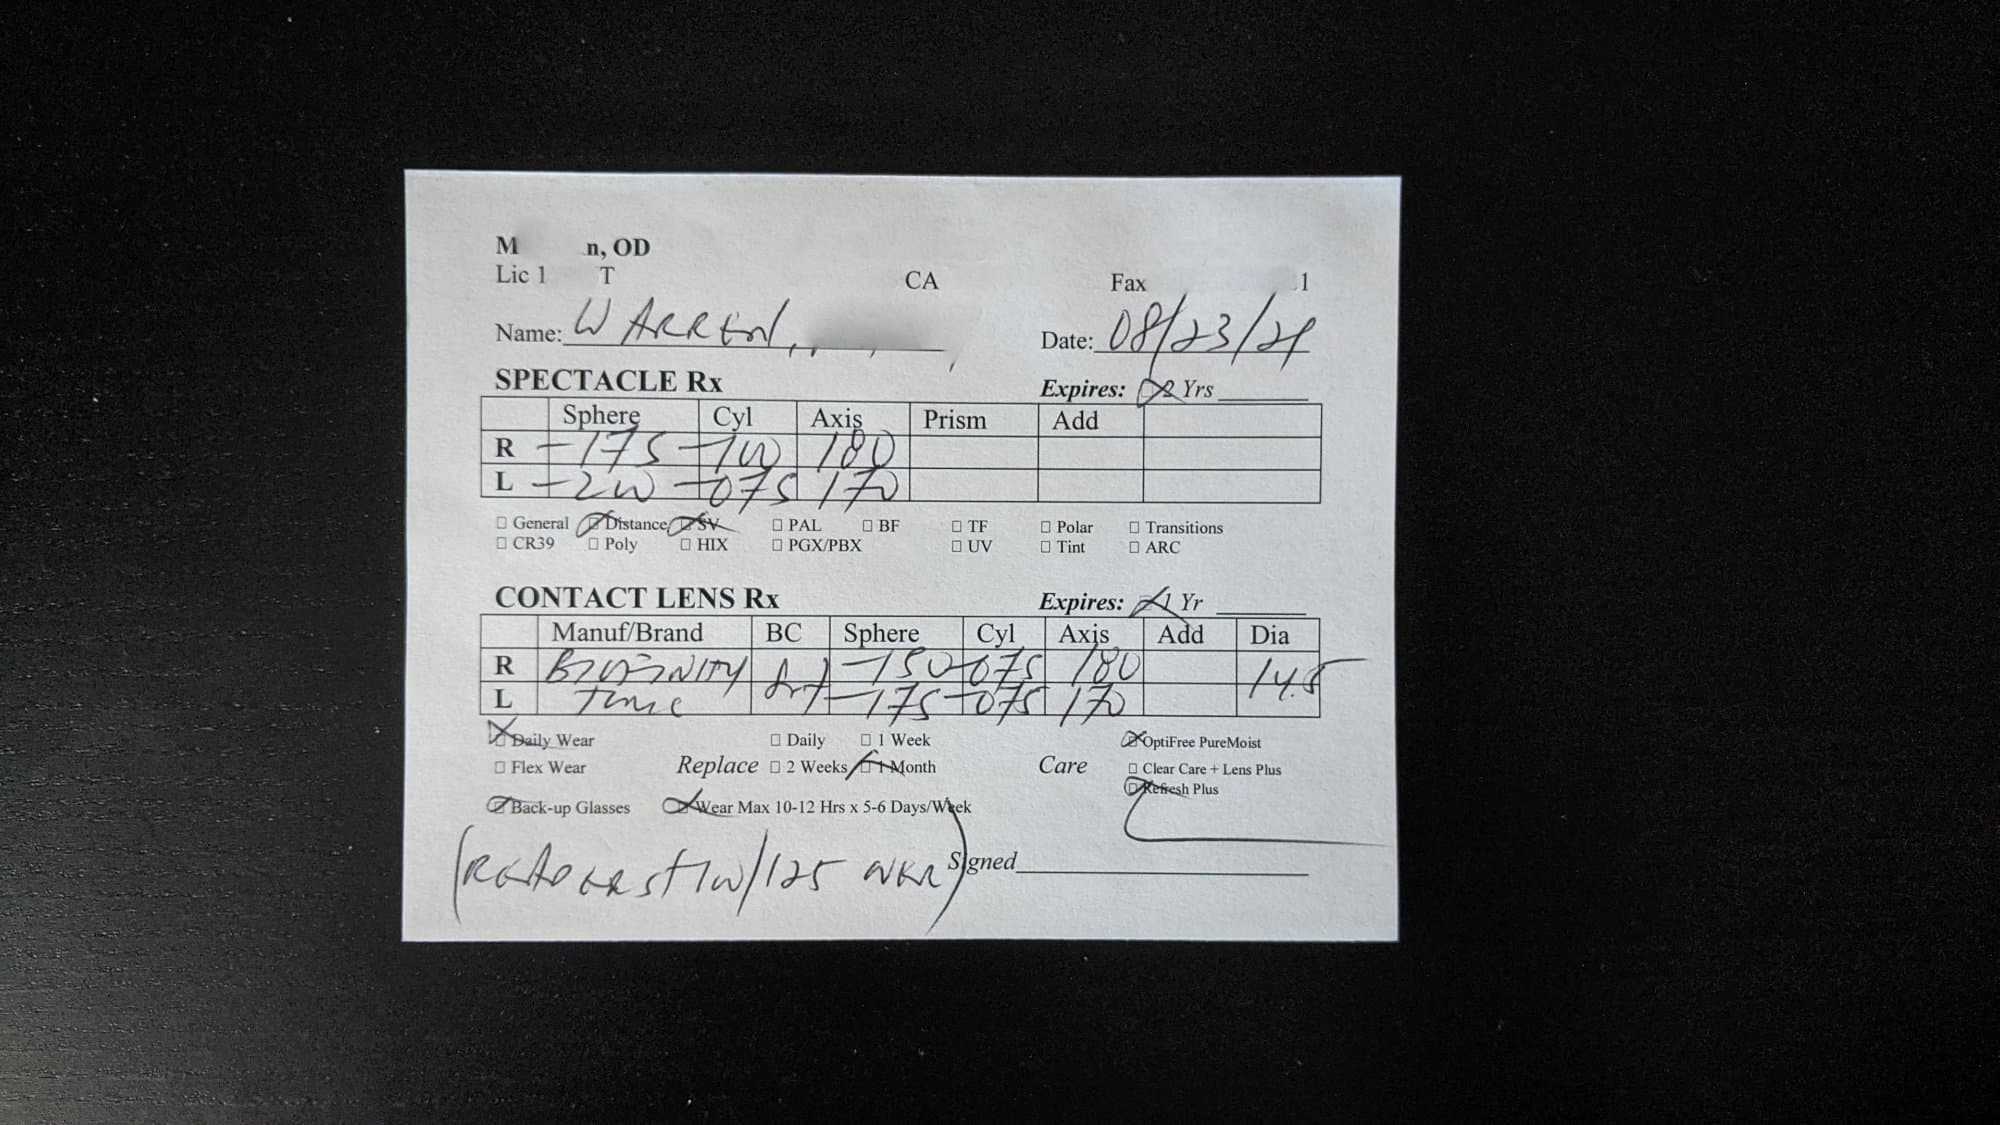 M n, OD
Lic 1 T CA Fax 1
Name: WARREN, Date: 08/23/24
SPECTACLE Rx Expires: 2 Yrs
Sphere Cyl Axis Prism Add
R -175 -100 180
L -200 -075 170
General Distance SV PAL BF TF Polar Transitions
CR39 Poly HIX PGX/PBX UV Tint ARC
CONTACT LENS Rx Expires: 1 Yr
Manuf/Brand BC Sphere Cyl Axis Add Dia
R BIOFINITY 8.7 -150 -075 180 14.5
L TORIC -175 -075 170
Daily Wear Daily 1 Week OptiFree PureMoist
Flex Wear Replace 2 Weeks 1 Month Care Clear Care + Lens Plus
Refresh Plus
Back-up Glasses Wear Max 10-12 Hrs x 5-6 Days/Week
(READERS +100/125 Signed